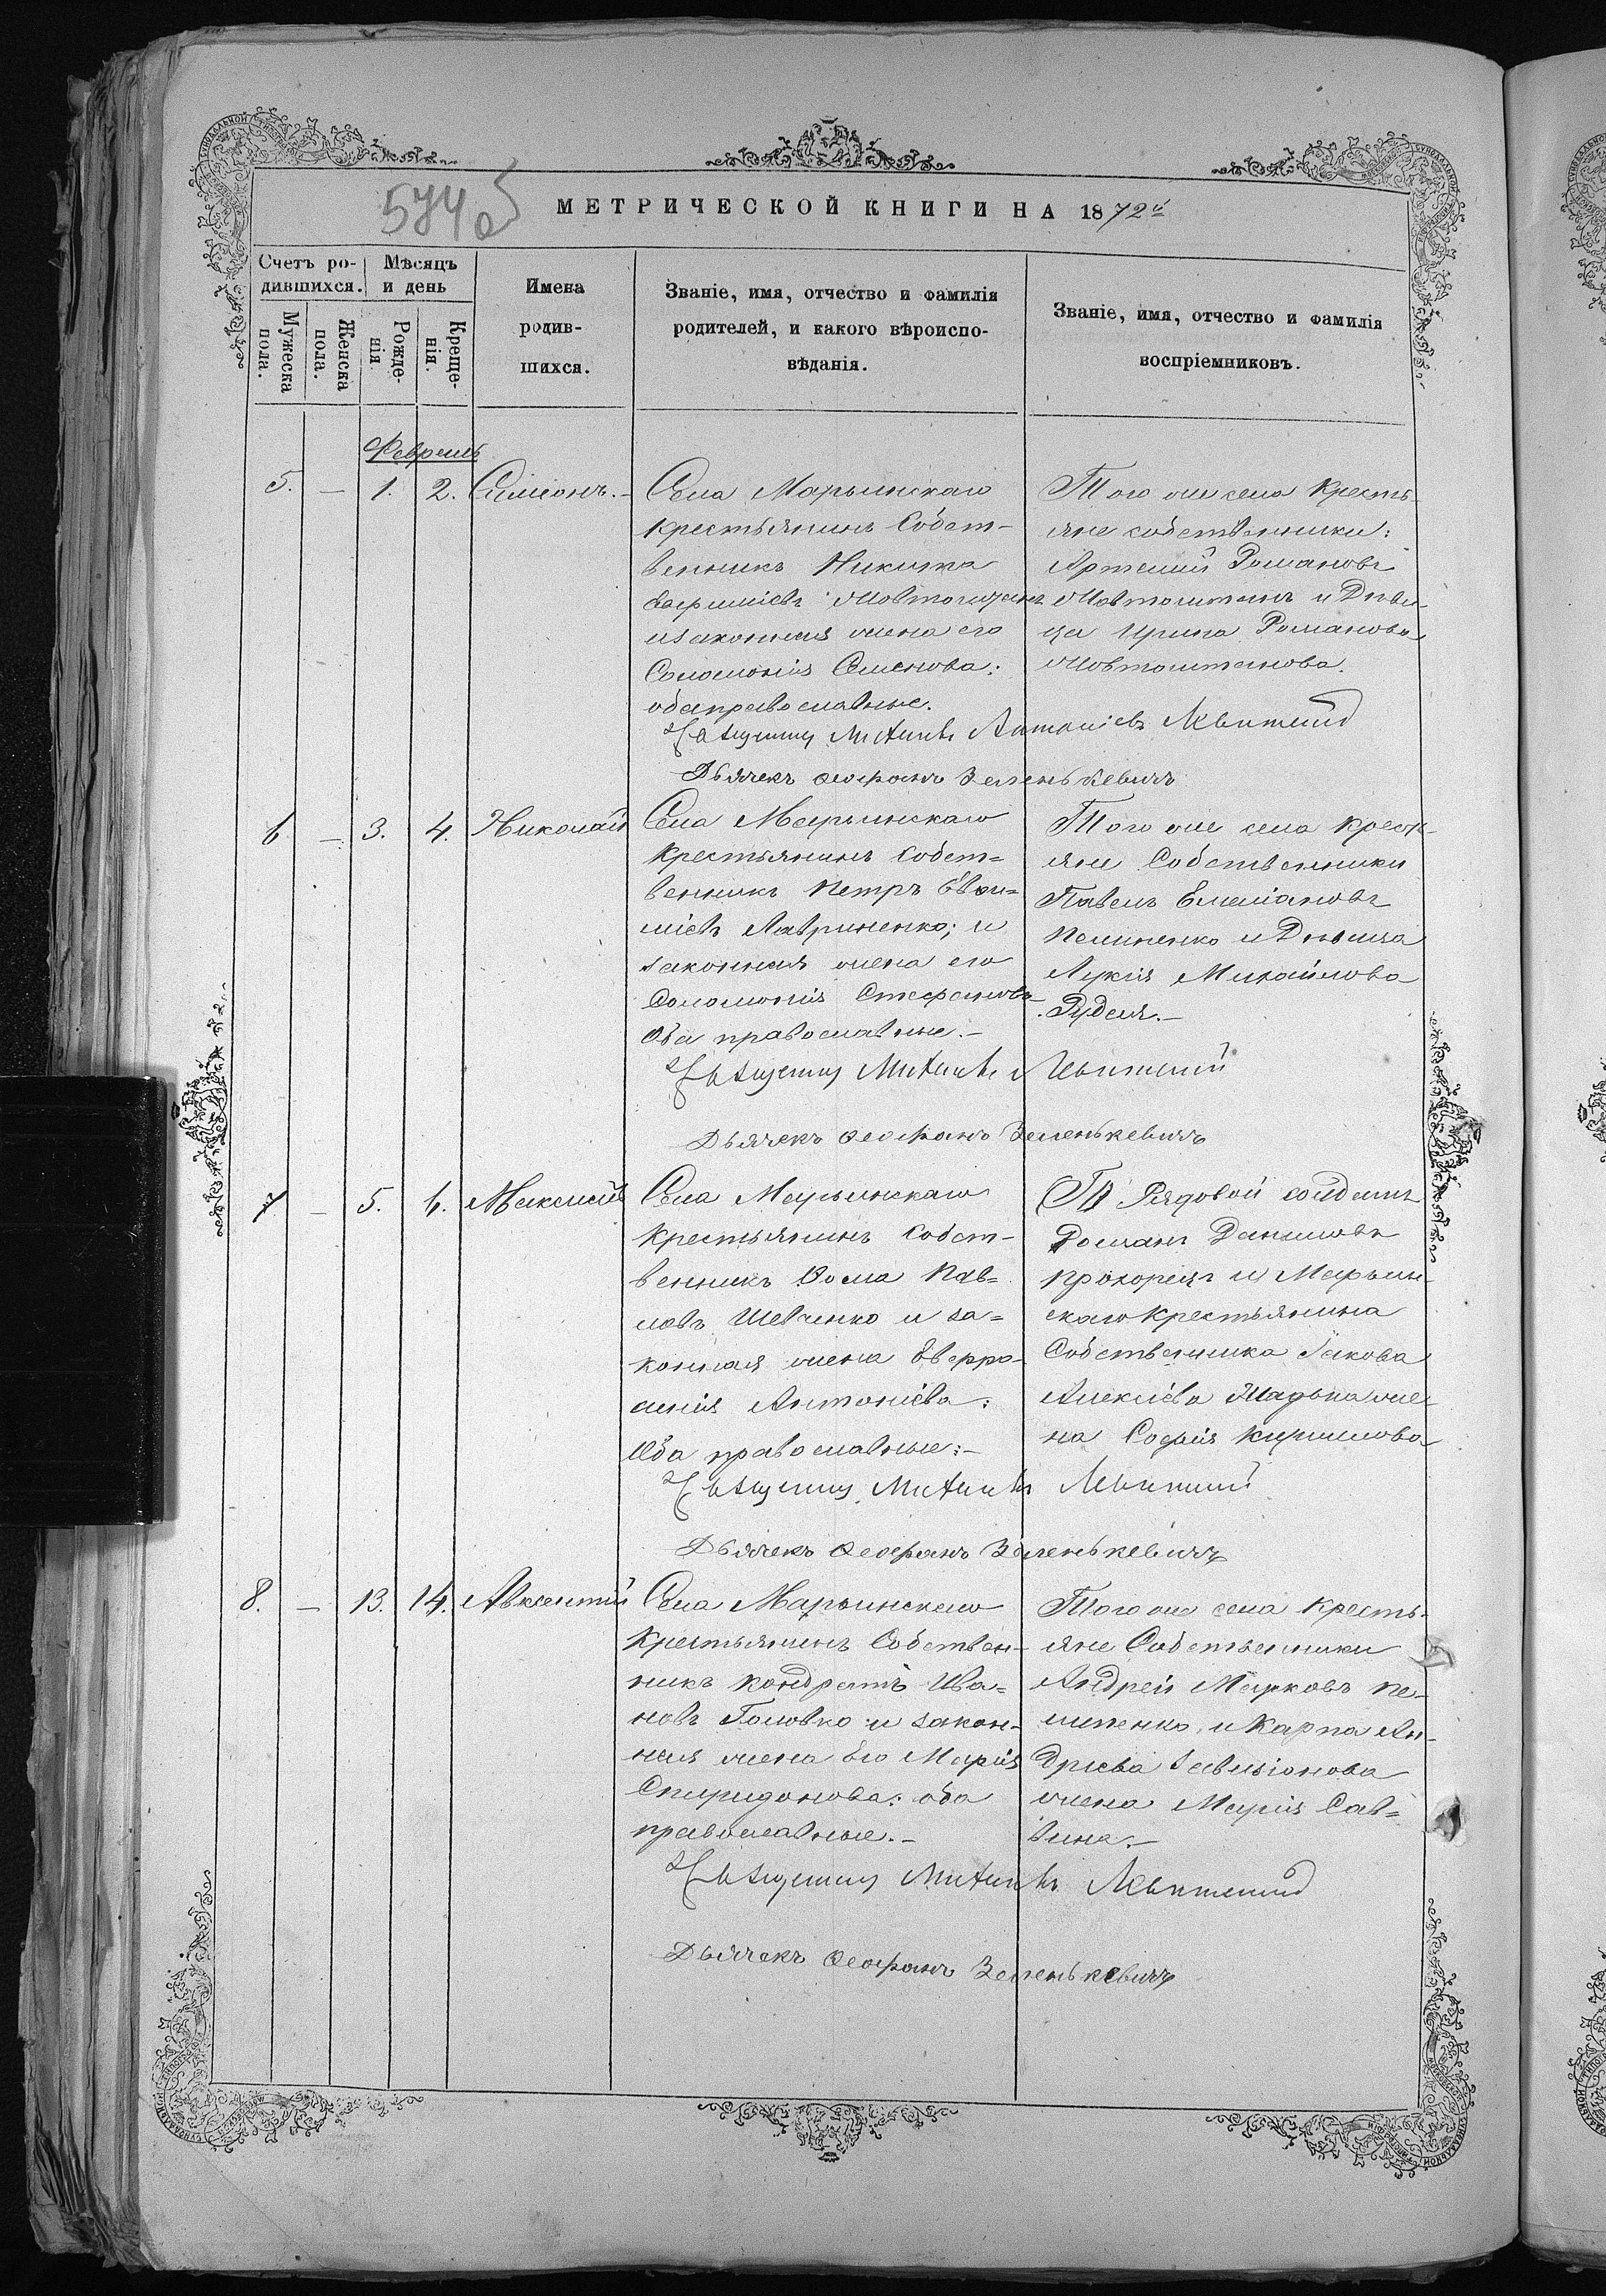 574 об
МЕТРИЧЕСКОЙ КНИГИ НА 1872й
Счетъ ро-
дившихся.
Мѣсяцъ
и день
Мужеска
пола.
Женска
пола.
Рожде-
нія.
Креще-
нія.
Имена
родив-
шихся.
Званіе, имя, отчество и фамилія
родителей, и какого вѣроиспо-
вѣданія.
Званіе, имя, отчество и фамилія
воспріемниковъ.
Февраль
5. — 1. 2. Симеонъ.
Села Марьинскаго
крестьянинъ Собст-
венникъ Никита
изаконная жена его
Соломонія Семенова:
обаправославные.
Того же села Кресть-
яне собственники:
Артемій Романовъ
Жовтоштанъ и Дѣви-
ца Ирина Романова
Жовтоштанова.
Антоніевъ Левитскій
Дьячекъ Феофанъ Зеленькевичъ
6 — 3. 4. Николай
Села Марьинскаго
Крестьянинъ Собст=
венникъ Петръ Евѳи=
міевъ Лавриненко; и
законная жена его
Соломонія Стефанова
Оба православные.—
Того же села Крест-
яне Собственники
Павелъ Емеліановъ
и Дѣвица
Лукія Михайлова
Рудея.—
Левитскій
Дьячекъ Феофанъ Зеленькевичъ
7 — 5. 6. Максимъ
Села Марьинскаго
Крестьянинъ Собст-
венникъ Ѳома Пав=
ловъ Шевченко и за=
конная жена Евфро-
синія Антоніева:
Оба православные:—
Рядовой солдатъ
Романъ Даниловъ
Прохорецъ и Марьин-
скаго Крестьянина
Собственника Іакова
Алексіева же-
на Софія Кирилова
Левитскій
Дьячекъ Феофанъ Зеленькевичъ
8. — 13. 14. Авксентій
Села Марьинскаго
Крестьянинъ Собствен-
никъ Кондратъ Ива=
новъ Головко и закон-
ная жена Его Марія
Спиридонова: оба
православные.—
Того же села Кресть-
яне Собственники
Андрей Марковъ Пе-
и Карпа Ан-
дріева
жена Марія Сав=
вина.—
Левитскій
Дьячекъ Феофанъ Зеленькевичъ